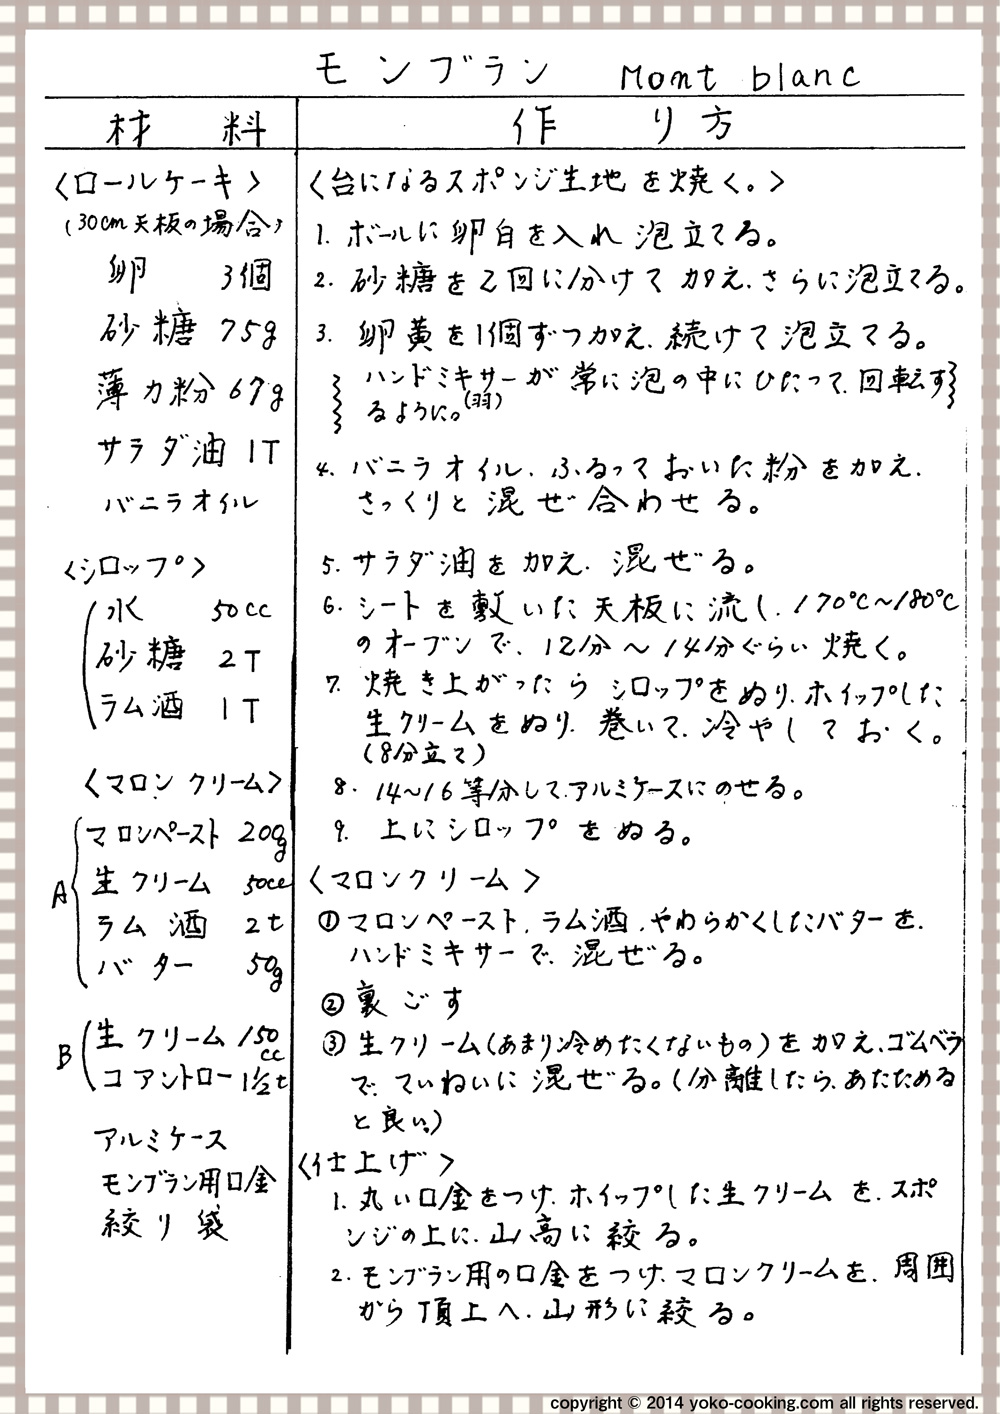 モンブラン Mont blanc
材料
作り方
〈ロールケーキ〉
(30cm天板の場合)
卵 3個
砂糖 75g
薄力粉 67g
サラダ油 1T
バニラオイル
〈シロップ〉
水 50cc
砂糖 2T
ラム酒 1T
〈マロンクリーム〉
A
マロンペースト 200g
生クリーム 50cc
ラム酒 2t
バター 50g
B
生クリーム 150cc
コアントロー 1½t
アルミケース
モンブラン用口金
絞り袋
〈台になるスポンジ生地を焼く。〉
1. ボールに卵白を入れ泡立てる。
2. 砂糖を2回に分けて加え、さらに泡立てる。
3. 卵黄を1個ずつ加え、続けて泡立てる。
ハンドミキサーが常に泡の中にひたって、回転す
るように。(羽)
4. バニラオイル、ふるっておいた粉を加え、
さっくりと混ぜ合わせる。
5. サラダ油を加え、混ぜる。
6. シートを敷いた天板に流し、170℃〜180℃
のオーブンで、12分〜14分ぐらい焼く。
7. 焼き上がったらシロップをぬり、ホイップした
生クリームをぬり、巻いて、冷やしておく。
(8分立て)
8. 14〜16等分して、アルミケースにのせる。
9. 上にシロップをぬる。
〈マロンクリーム〉
① マロンペースト、ラム酒、やわらかくしたバターを、
ハンドミキサーで、混ぜる。
② 裏ごす
③ 生クリーム(あまり冷めたくないもの)を加え、ゴムベラ
で、ていねいに混ぜる。(分離したら、あたためる
と良い。)
〈仕上げ〉
1. 丸い口金をつけ、ホイップした生クリームを、スポ
ンジの上に、山高に絞る。
2. モンブラン用の口金をつけ、マロンクリームを、周囲
から頂上へ、山形に絞る。
copyright © 2014 yoko-cooking.com all rights reserved.